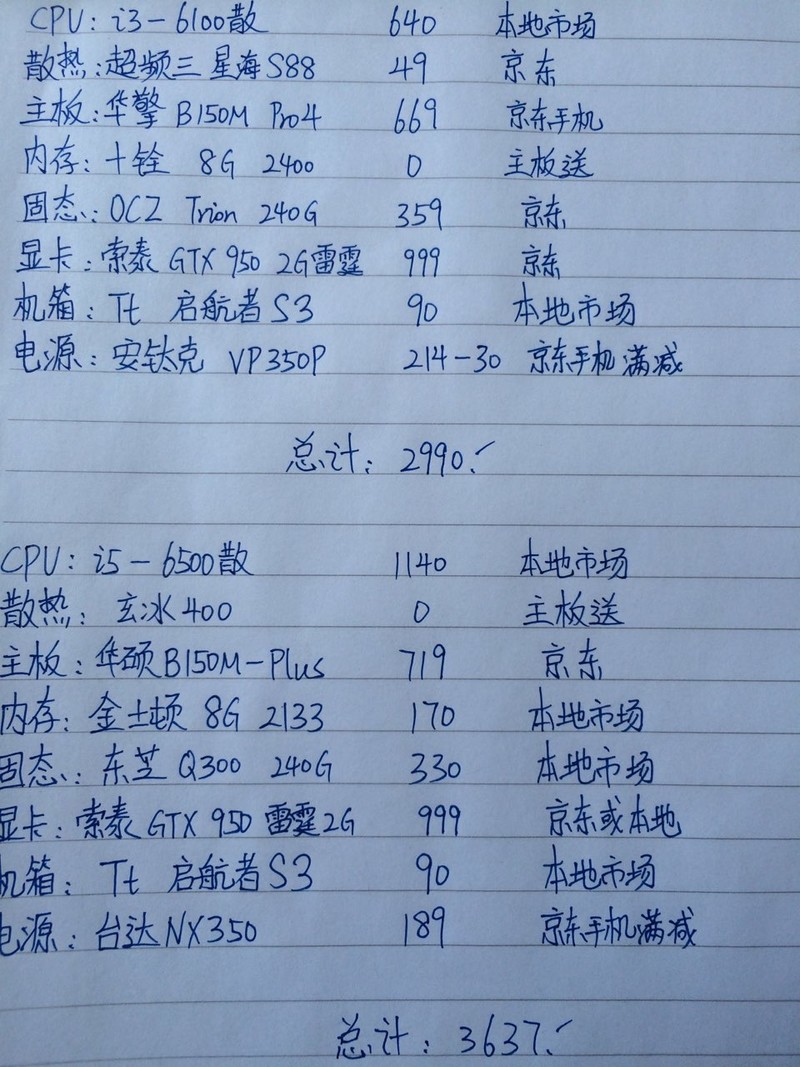 CPU: i3-6100散 640 本地市场
散热:超频三 星海S88 49 京东
主板:华擎 B150M Pro4 669 京东手机
内存:十铨 8G 2400 0 主板送
固态:OCZ Trion 240G 359 京东
显卡:索泰 GTX 950 2G雷霆 999 京东
机箱:Tt 启航者S3 90 本地市场
电源:安钛克 VP350P 214-30 京东手机满减
总计:2990.-
CPU: i5-6500散 1140 本地市场
散热:玄冰400 0 主板送
主板:华硕B150M-Plus 719 京东
内存:金士顿 8G 2133 170 本地市场
固态:东芝 Q300 240G 330 本地市场
显卡:索泰 GTX 950 雷霆2G 999 京东或本地
机箱:Tt 启航者S3 90 本地市场
电源:台达NX350 189 京东手机满减
总计:3637.-